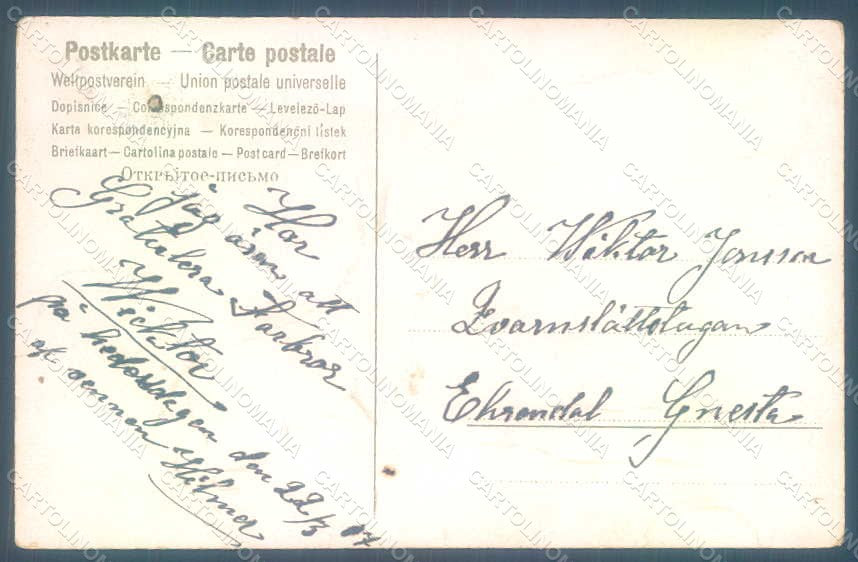 Postkarte — Carte postale
Weltpostverein — Union postale universelle
Dopisnice — Correspondenzkarte — Levelező-Lap
Karta korespondencyjna — Korespondenčni listek
Briefkaart — Cartolina postale — Post card — Brefkort
Открытое-письмо
Har
jag äran att
Gratulera Farbror
Wicktor
på hedersdagen den 22/3 07
af vennen Hilmer
Herr Wiktor Jonsson
Qvarnslåttstugan
Ehrendal Gnesta
CARTOLINOMANIA